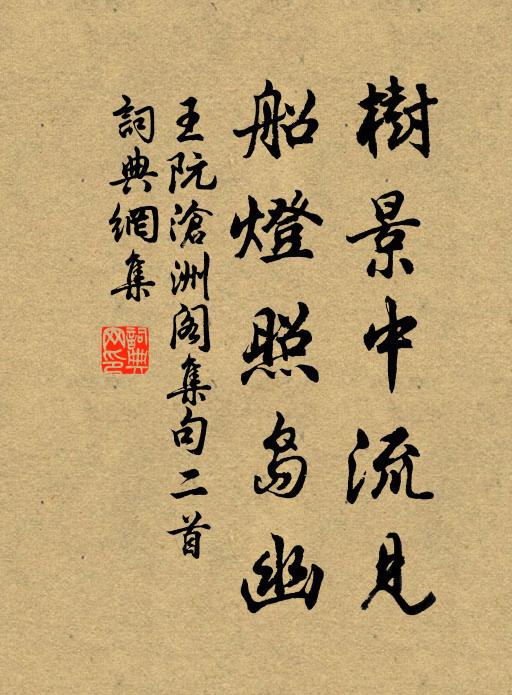 樹景中流見
船燈照島幽
王阮滄洲阁集句二首
詞典網集
詞典网印